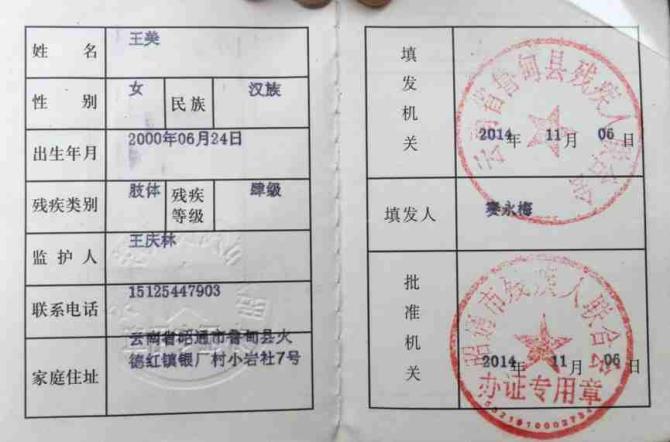 姓 名 王美
性 别 女 民族 汉族
出生年月 2000年06月24日
残疾类别 肢体 残疾等级 肆级
监 护 人 王庆林
联系电话 15125447903
家庭住址 云南省昭通市鲁甸县火
德红镇银厂村小岩社7号
填发机关 2014年 11月 06日
云南省鲁甸县残疾人联合会
填发人 娄永梅
批准机关 2014年 11月 06日
昭通市残疾人联合会
办证专用章